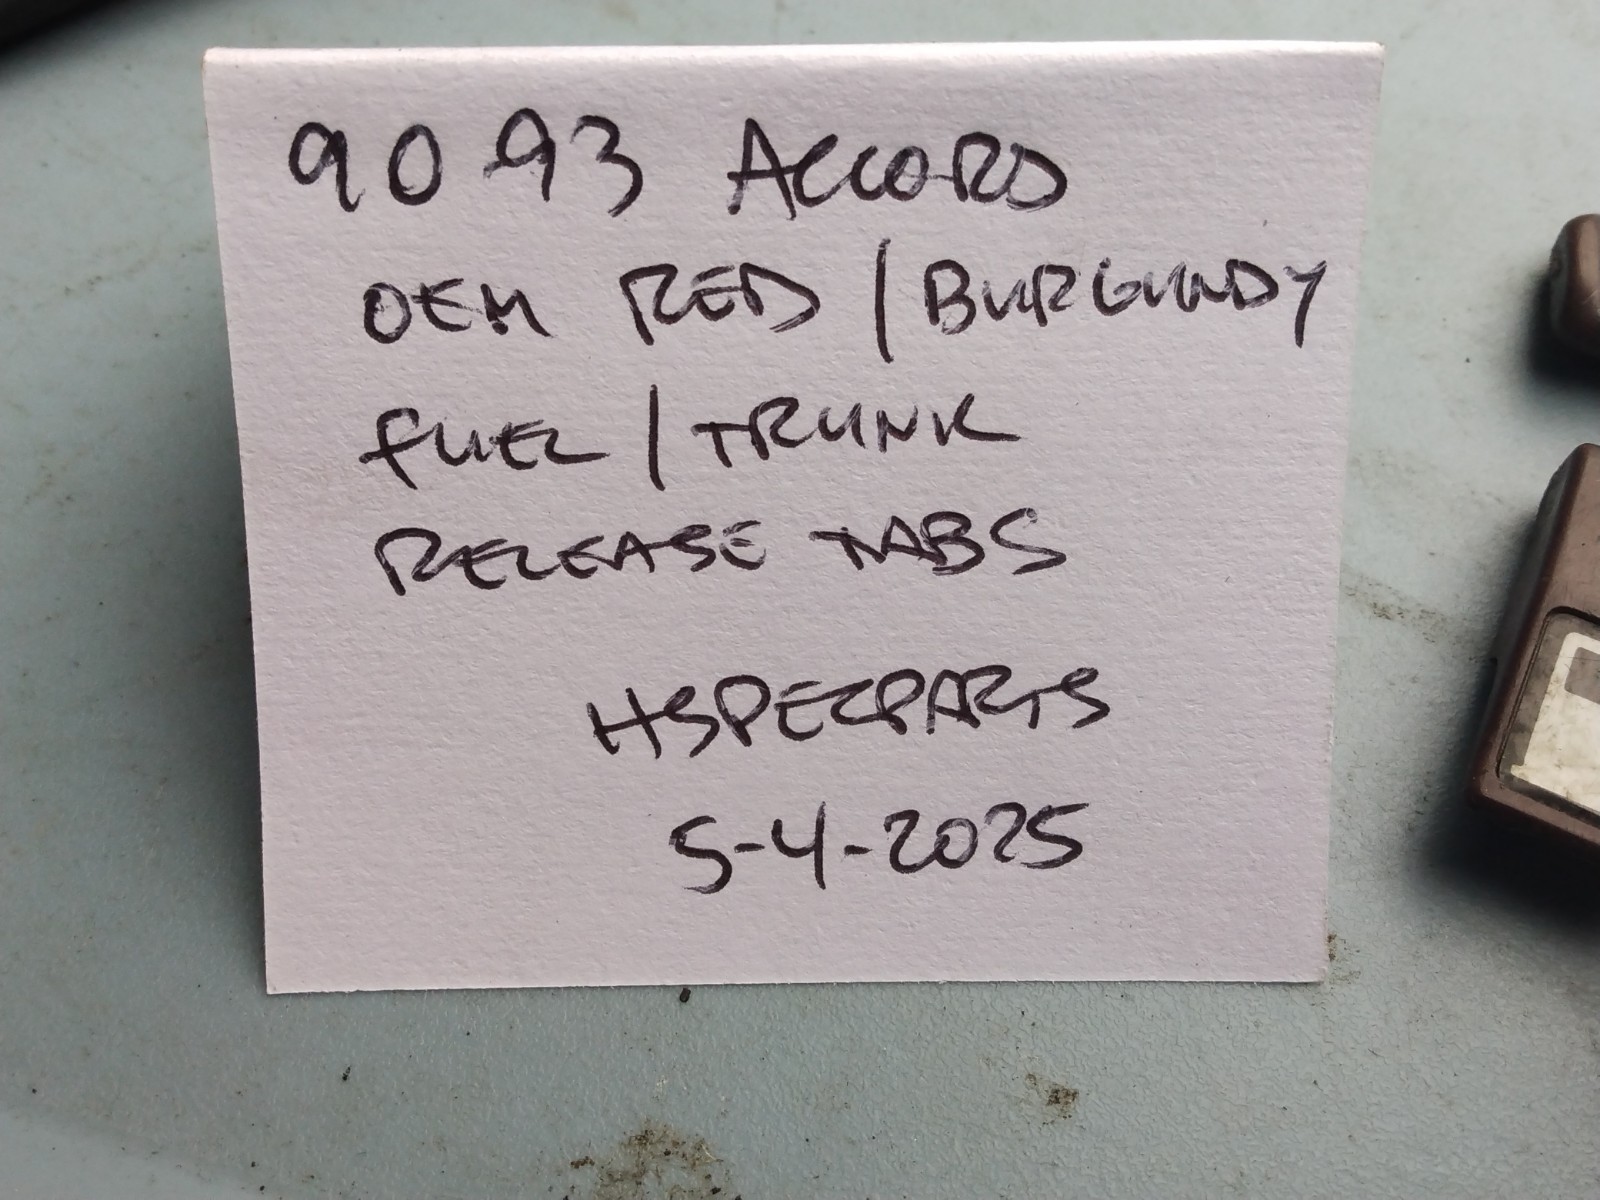 90-93 ACCORD
OEM RED / BURGUNDY
FUEL / TRUNK
RELEASE TABS
HSPECPARTS
5-4-2025